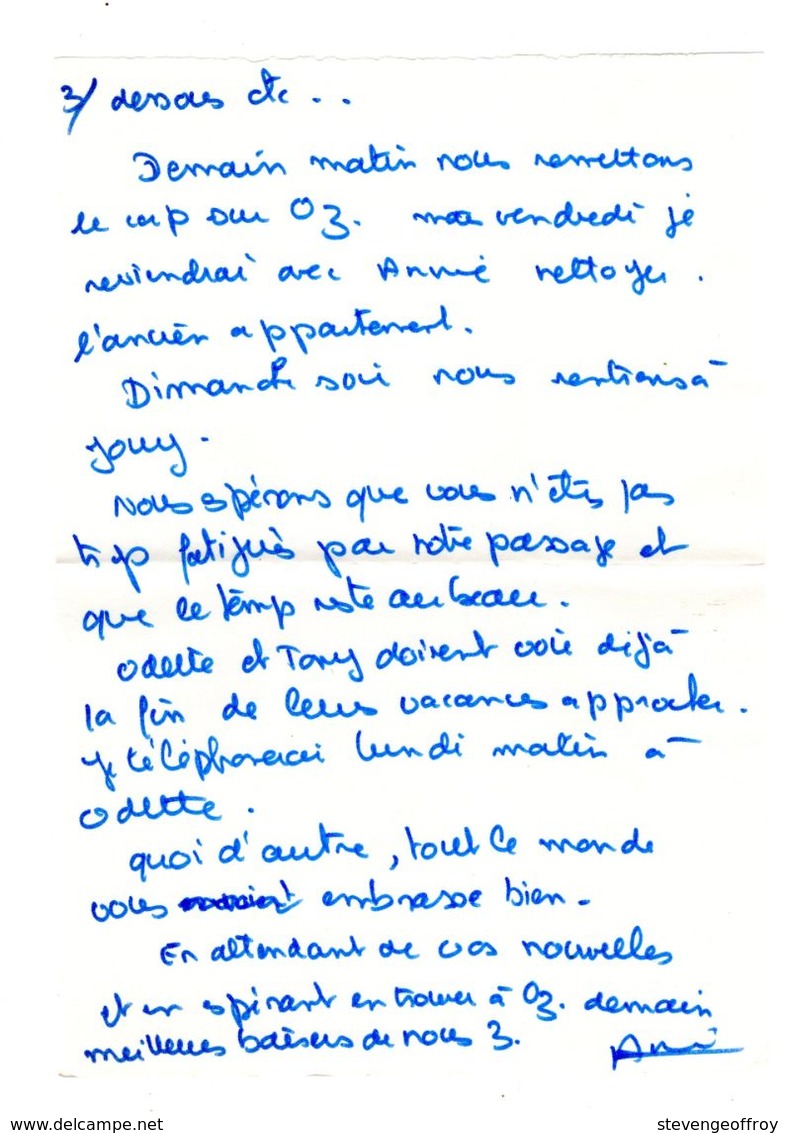 3/ dessous etc ..
Demain matin nous remettons
le cap sur Oz. vendredi je
reviendrai avec Annie nettoyer .
l'ancien appartement.
Dimanche soir nous rentrons à
Jouy.
Nous espérons que vous n'êtes pas
trop fatigués par notre passage et
que le temp reste au beau.
Odette et Tony doivent voir déjà
la fin de leurs vacances approcher.
Je téléphonerai lundi matin à
Odette.
quoi d'autre, tout le monde
vous embrasse bien.
En attendant de vos nouvelles
et en espérant en trouver à Oz. demain
meilleurs baisers de nous 3.
www.delcampe.net
stevengeoffroy